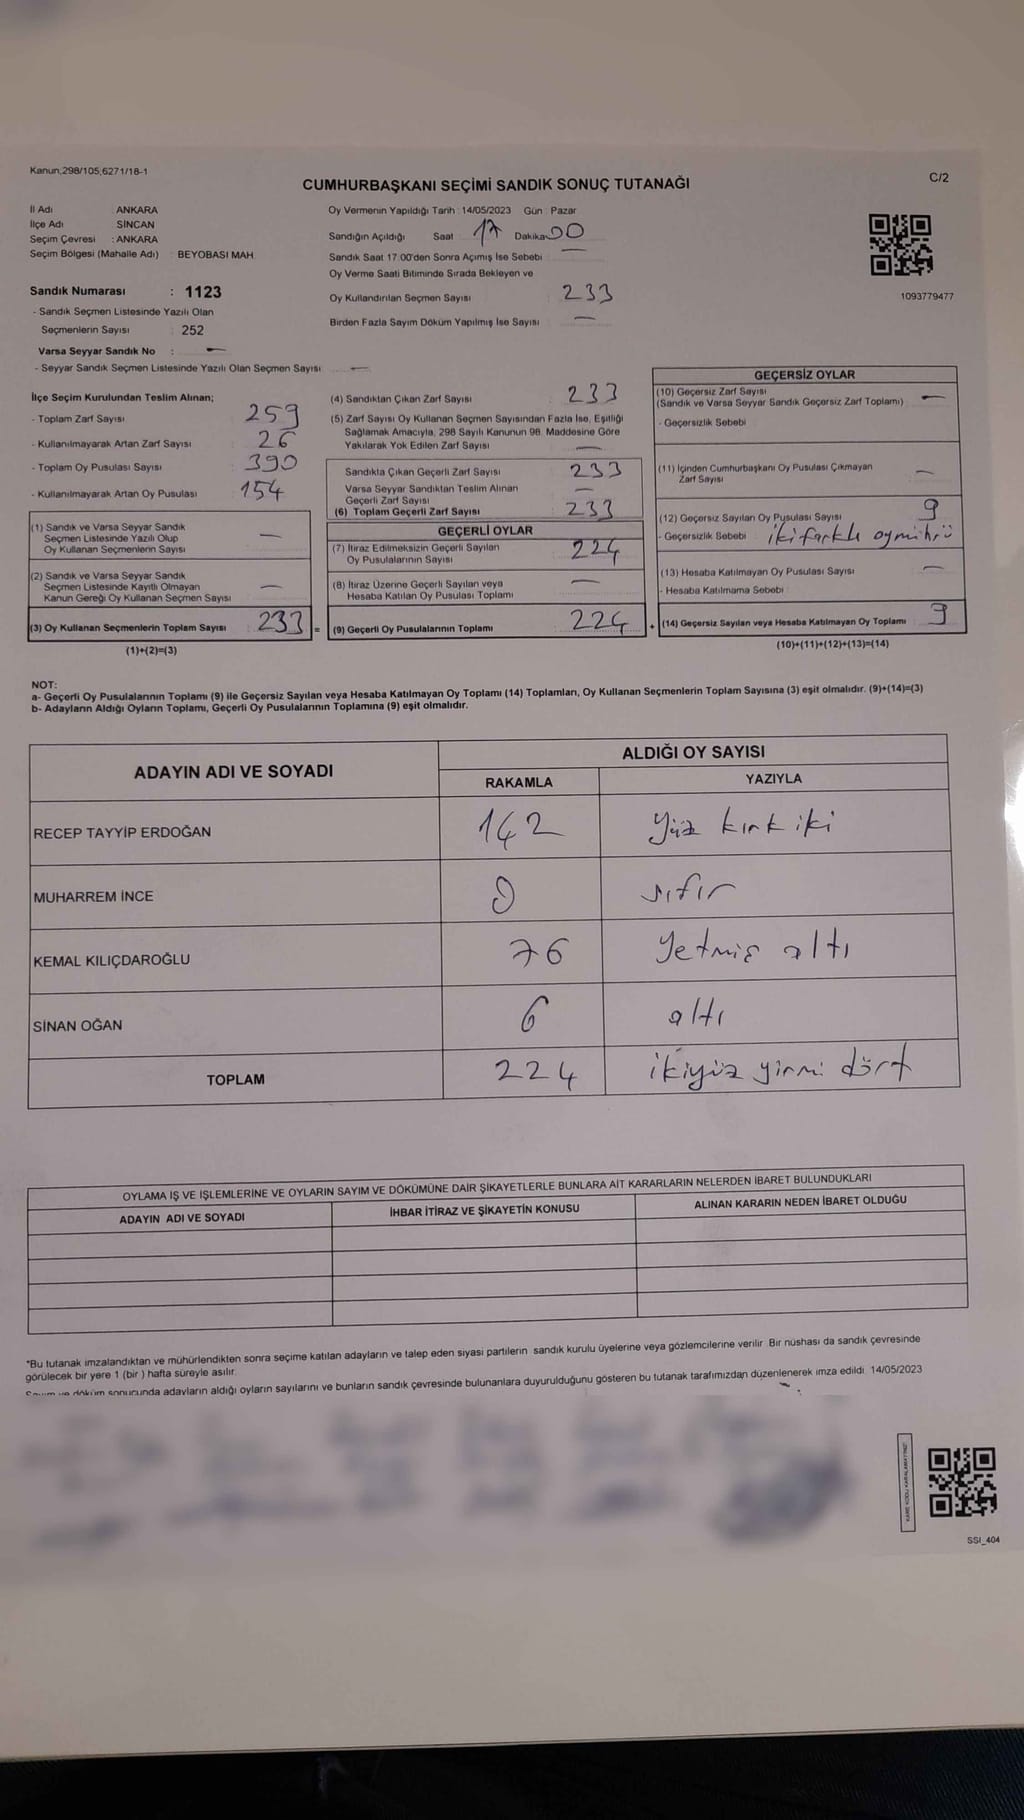 Kanun;298/105,6271/18-1
C/2
CUMHURBAŞKANI SEÇİMİ SANDIK SONUÇ TUTANAĞI
İl Adı : ANKARA
İlçe Adı : SİNCAN
Seçim Çevresi : ANKARA
Seçim Bölgesi (Mahalle Adı) : BEYOBASI MAH.
Sandık Numarası : 1123
- Sandık Seçmen Listesinde Yazılı Olan
Seçmenlerin Sayısı : 252
Varsa Seyyar Sandık No : —
- Seyyar Sandık Seçmen Listesinde Yazılı Olan Seçmen Sayısı : —
Oy Vermenin Yapıldığı Tarih : 14/05/2023 Gün : Pazar
Sandığın Açıldığı Saat 17 Dakika 00
Sandık Saat 17.00'den Sonra Açımış İse Sebebi : —
Oy Verme Saati Bitiminde Sırada Bekleyen ve
Oy Kullandırılan Seçmen Sayısı : 233
Birden Fazla Sayım Döküm Yapılmış İse Sayısı : —
1093779477
İlçe Seçim Kurulundan Teslim Alınan;
- Toplam Zarf Sayısı : 259
- Kullanılmayarak Artan Zarf Sayısı : 26
- Toplam Oy Pusulası Sayısı : 390
- Kullanılmayarak Artan Oy Pusulası : 154
(1) Sandık ve Varsa Seyyar Sandık
Seçmen Listesinde Yazılı Olup
Oy Kullanan Seçmenlerin Sayısı —
(2) Sandık ve Varsa Seyyar Sandık
Seçmen Listesinde Kayıtlı Olmayan
Kanun Gereği Oy Kullanan Seçmen Sayısı —
(3) Oy Kullanan Seçmenlerin Toplam Sayısı : 233 =
(1)+(2)=(3)
(4) Sandıktan Çıkan Zarf Sayısı : 233
(5) Zarf Sayısı Oy Kullanan Seçmen Sayısından Fazla İse, Eşitliği
Sağlamak Amacıyla, 298 Sayılı Kanunun 98. Maddesine Göre
Yakılarak Yok Edilen Zarf Sayısı —
Sandıkla Çıkan Geçerli Zarf Sayısı 233
Varsa Seyyar Sandıktan Teslim Alınan
Geçerli Zarf Sayısı —
(6) Toplam Geçerli Zarf Sayısı : 233
GEÇERLİ OYLAR
(7) İtiraz Edilmeksizin Geçerli Sayılan
Oy Pusulalarının Sayısı : 224
(8) İtiraz Üzerine Geçerli Sayılan veya
Hesaba Katılan Oy Pusulası Toplamı —
(9) Geçerli Oy Pusulalarının Toplamı : 224 +
GEÇERSİZ OYLAR
(10) Geçersiz Zarf Sayısı
(Sandık ve Varsa Seyyar Sandık Geçersiz Zarf Toplamı) : —
- Geçersizlik Sebebi :
(11) İçinden Cumhurbaşkanı Oy Pusulası Çıkmayan
Zarf Sayısı —
(12) Geçersiz Sayılan Oy Pusulası Sayısı : 9
- Geçersizlik Sebebi : iki farklı oy mührü
(13) Hesaba Katılmayan Oy Pusulası Sayısı : —
- Hesaba Katılmama Sebebi :
(14) Geçersiz Sayılan veya Hesaba Katılmayan Oy Toplamı : 9
(10)+(11)+(12)+(13)=(14)
NOT:
a- Geçerli Oy Pusulalarının Toplamı (9) ile Geçersiz Sayılan veya Hesaba Katılmayan Oy Toplamı (14) Toplamları, Oy Kullanan Seçmenlerin Toplam Sayısına (3) eşit olmalıdır. (9)+(14)=(3)
b- Adayların Aldığı Oyların Toplamı, Geçerli Oy Pusulalarının Toplamına (9) eşit olmalıdır.
ADAYIN ADI VE SOYADI
ALDIĞI OY SAYISI
RAKAMLA YAZIYLA
RECEP TAYYİP ERDOĞAN 142 Yüz kırk iki
MUHARREM İNCE 0 sıfır
KEMAL KILIÇDAROĞLU 76 Yetmiş altı
SİNAN OĞAN 6 altı
TOPLAM 224 ikiyüz yirmi dört
OYLAMA İŞ VE İŞLEMLERİNE VE OYLARIN SAYIM VE DÖKÜMÜNE DAİR ŞİKAYETLERLE BUNLARA AİT KARARLARIN NELERDEN İBARET BULUNDUKLARI
ADAYIN ADI VE SOYADI İHBAR İTİRAZ VE ŞİKAYETİN KONUSU ALINAN KARARIN NEDEN İBARET OLDUĞU
*Bu tutanak imzalandıktan ve mühürlendikten sonra seçime katılan adayların ve talep eden siyasi partilerin sandık kurulu üyelerine veya gözlemcilerine verilir. Bir nüshası da sandık çevresinde
görülecek bir yere 1 (bir ) hafta süreyle asılır.
Sayım ve döküm sonucunda adayların aldığı oyların sayılarını ve bunların sandık çevresinde bulunanlara duyurulduğunu gösteren bu tutanak tarafımızdan düzenlenerek imza edildi. 14/05/2023
KARE KODU KARALAMAYINIZ!
SSI_404